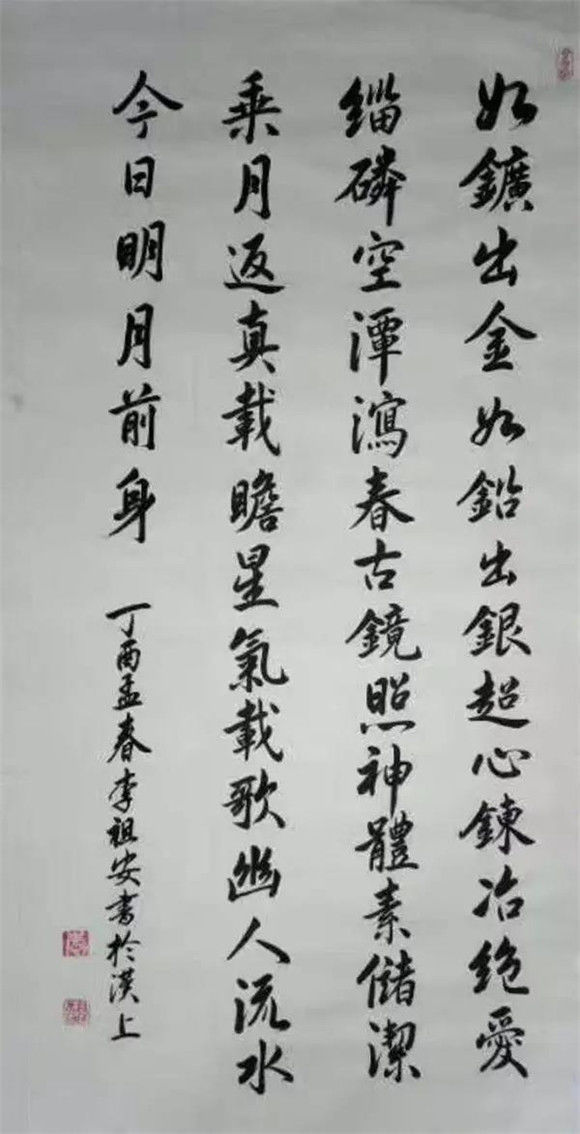 如鑛出金如鉛出銀超心鍊冶絶愛
緇磷空潭瀉春古鏡照神體素儲潔
乘月返真載瞻星氣載歌幽人流水
今日明月前身
丁酉孟春李祖安書於漢上